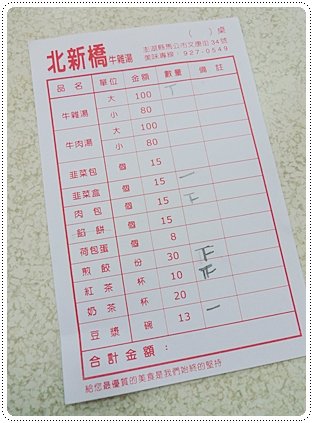 ( )桌
北新橋牛雜湯
澎湖縣馬公市文康街34號
美味專線:927-0549
品名 單位 金額 數量 備註
牛雜湯 大 100 丅
小 80
牛肉湯 大 100
小 80
韭菜包 個 15
韭菜盒 個 15 一
肉包 個 15 下
餡餅 個 15
荷包蛋 個 8
煎餃 份 30 下
紅茶 杯 10 正
奶茶 杯 20
豆漿 碗 13 一
合計金額:
給您最優質的美食是我們始終的堅持